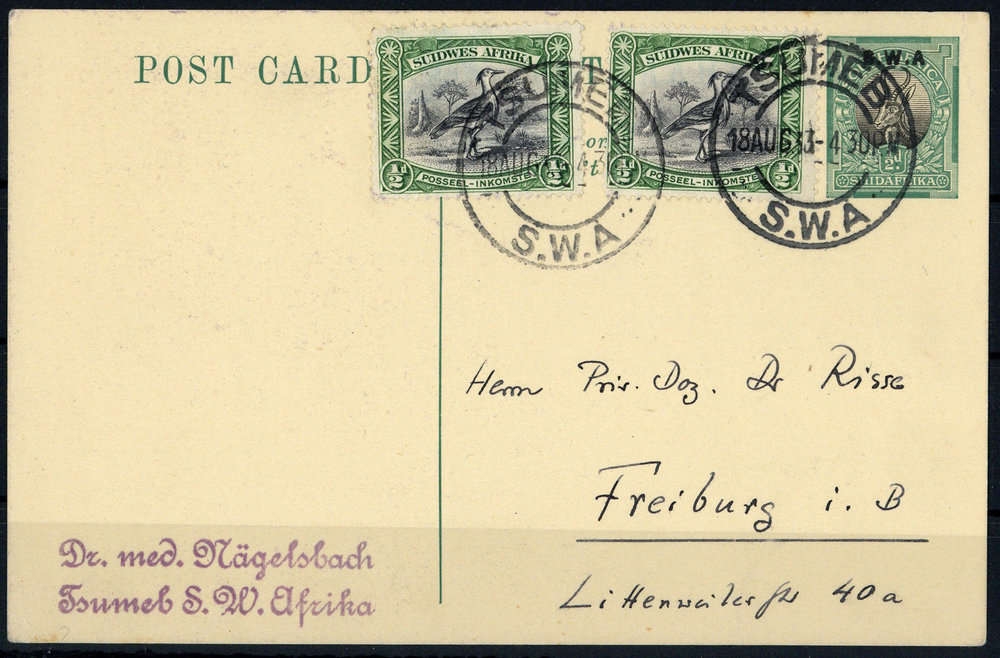 POST CARD
SUIDWES AFRIKA
½ POSSEEL-INKOMSTE ½
SUIDWES AFRIKA
½ POSSEEL-INKOMSTE ½
S.W.A
½D
SUIDAFRIKA
TSUMEB
18 AUG 33-4 30PM
S.W.A
TSUMEB
18 AUG 33-4 30PM
S.W.A
Herrn Priv. Doz. Dr Risse
Freiburg i. B
Littenweilerstr 40a
Dr. med. Nägelsbach
Tsumeb S. W. Afrika